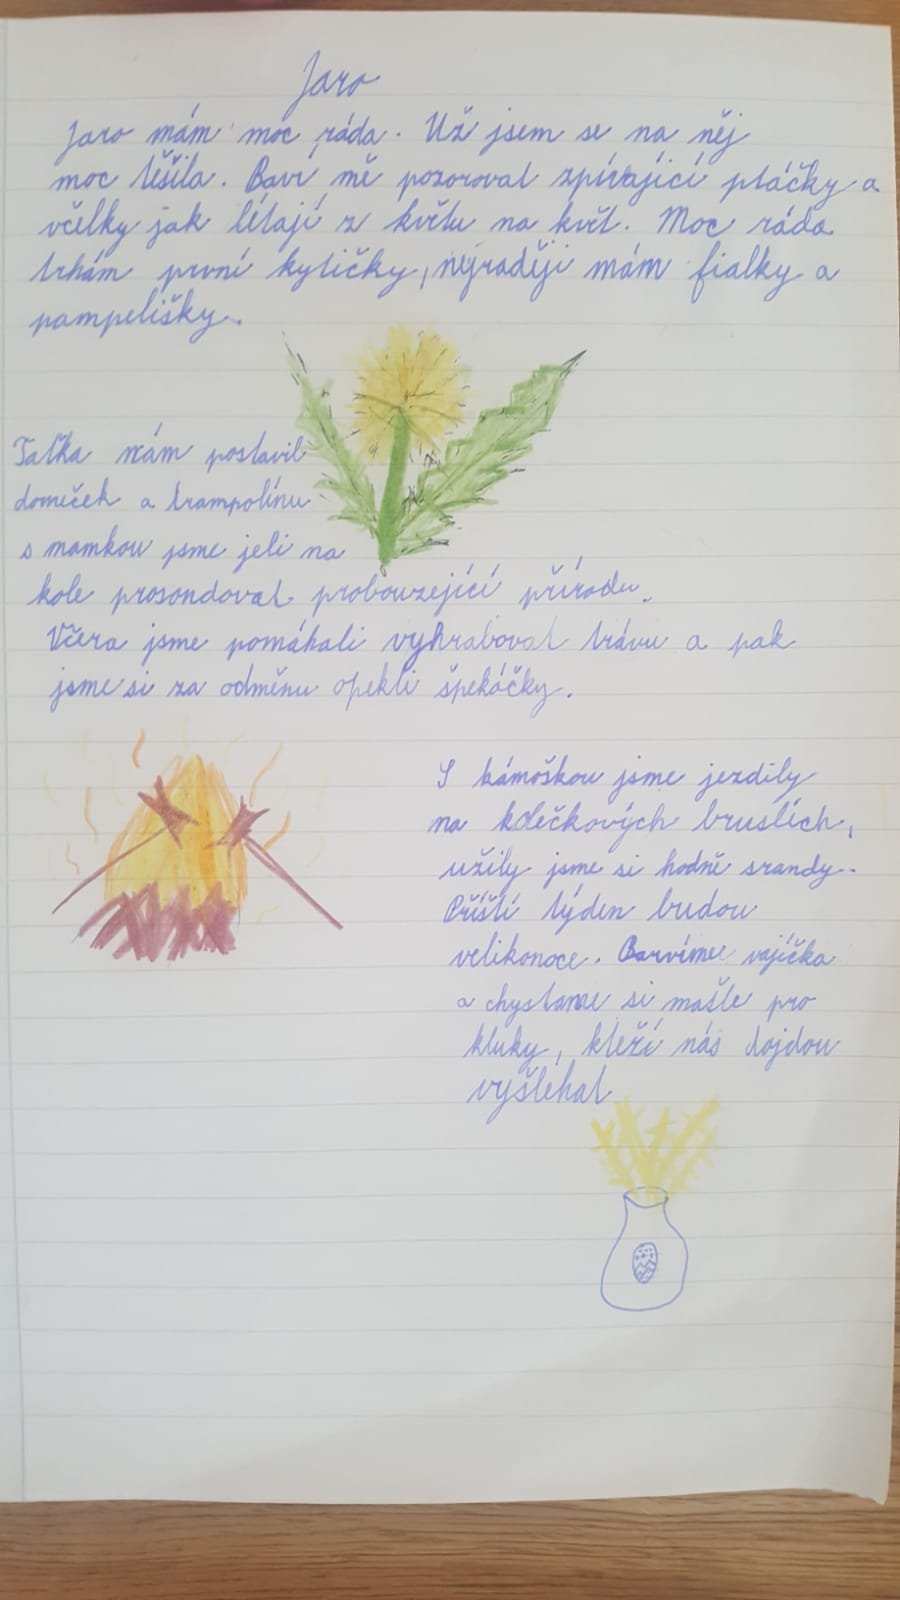 Jaro
Jaro mám moc ráda. Už jsem se na něj
moc těšila. Baví mě pozorovat zpívající ptáčky a
včelky jak létají z květu na květ. Moc ráda
trhám první kytičky, nejraději mám fialky a
pampelišky.
Taťka nám postavil
domeček a trampolínu
s mamkou jsme jeli na
kole prosondovat probouzející přírodu.
Včera jsme pomáhali vyhrabovat trávu a pak
jsme si za odměnu opekli špekáčky.
S kámoškou jsme jezdily
na kolečkových bruslích,
užily jsme si hodně srandy.
Příští týden budou
velikonoce. Barvíme vajíčka
a chystame si mašle pro
kluky, kteří nás dojdou
vyšlehat